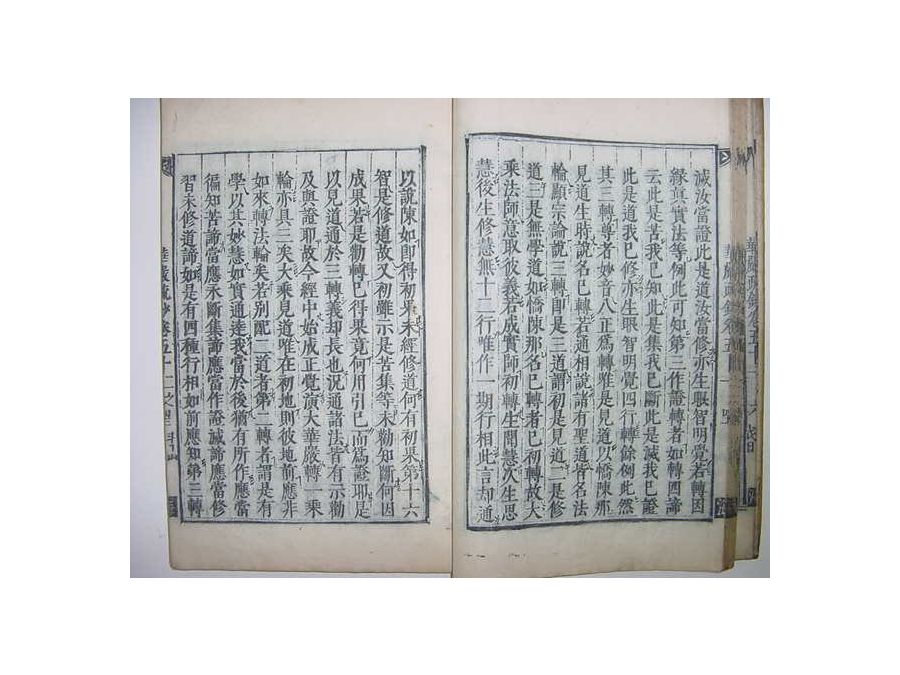 滅汝當證此是道汝當修亦生眼智明覺若轉因
緣真實法等例此可知第三作證轉者如轉四諦
云此是苦我已知此是集我已斷此是滅我已證
此是道我已修亦生眼智明覺四行轉餘例此然
其三轉尊者妙音八正爲轉唯是見道以憍陳那
見道生時說名已轉若通相說諸有聖道皆名法
輪顯宗論說三轉即是三道謂初是見道二是修
道三是無學道如憍陳那名已轉者已初轉故大
乘法師意取彼義若成實師初轉生聞慧次生思
慧後生修慧無十二行唯作一期行相此言却通
以說陳如即得初果未經修道何有初果第十六
智是修道故又初雖示是苦集等未勸知斷何因
成果若是勸轉已得果竟何用引已而爲證耶是
以見道通於三轉義却長也況通諸法皆有示勸
及與證耶故今經中始成正覺演大華嚴轉一乘
輪亦具三矣大乘見道唯在初地則彼地前應非
如來轉法輪矣若別配二道者第二轉者謂是有
學以其妙慧如實通達我當於後猶有所作應當
徧知苦諦當應永斷集諦應當作證滅諦應當修
習未修道諦如是有四種行相如前應知第三轉
華嚴疏鈔卷五十二之四